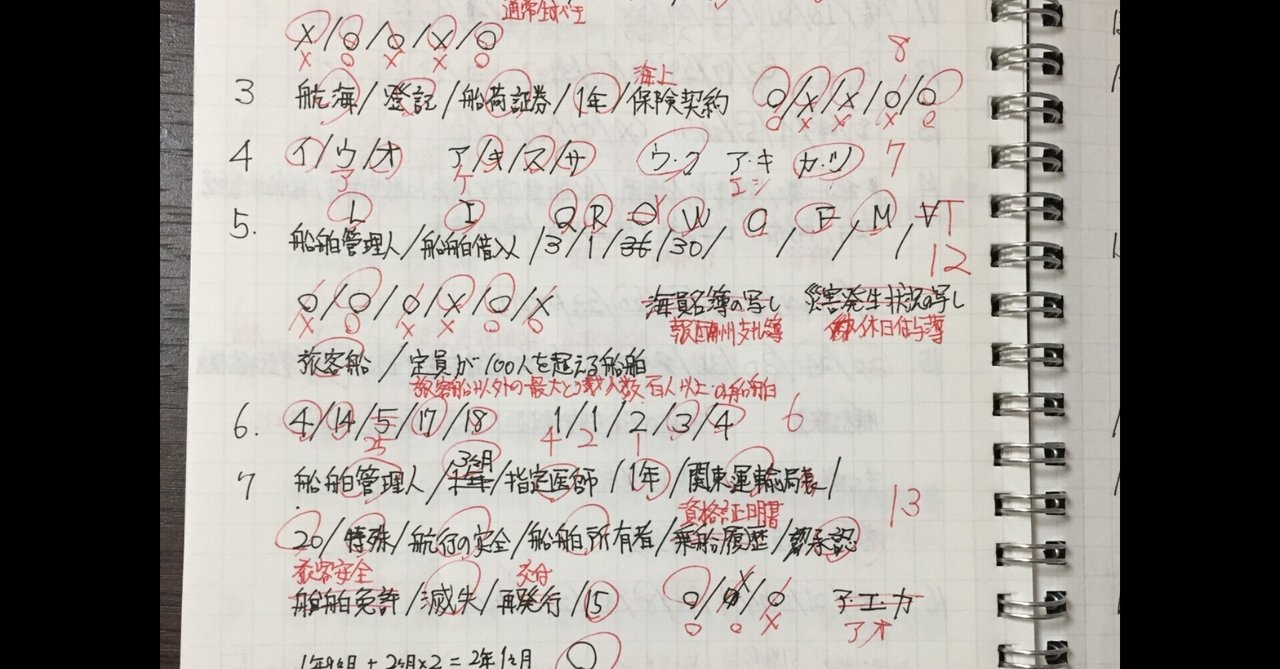 通常
X/O/O/X/O
X O X X O
海上 8
3 航海/登記/船荷証券/1年/保険契約 O/X/X/O/O
O X X X O
4 イ/ウ/オ ア/キ/ス/サ ウ・ク ア・キ カ・ツ 7
ア ケ エシ
L I Q R O Y W C F M T
5. 船舶管理人/船舶借入/3/1/36/30/ / / / 12
O/O/O/X/O/X 海員名簿の写し 災害発生状況の写し
X O X X O O 報酬支払簿 休日付与簿
旅客船/定員が100人を超える船舶
旅客船以外の最大とう載人数百人以上の船舶
6. 4/14/5/17/18 1/1/2/3/4 6
25 4 2 1
3ヶ月
7 船舶管理人/半年/指定医師/1年/関東運輸局長/
資格証明書 13
20/特殊/航行の安全/船舶所有者/乗船履歴/承認
旅客安全 交付
船舶免許/滅失/再発行/15 O/O/O アエカ
O O X アオ
1年9ヶ月+2ヶ月×2=2年1ヶ月